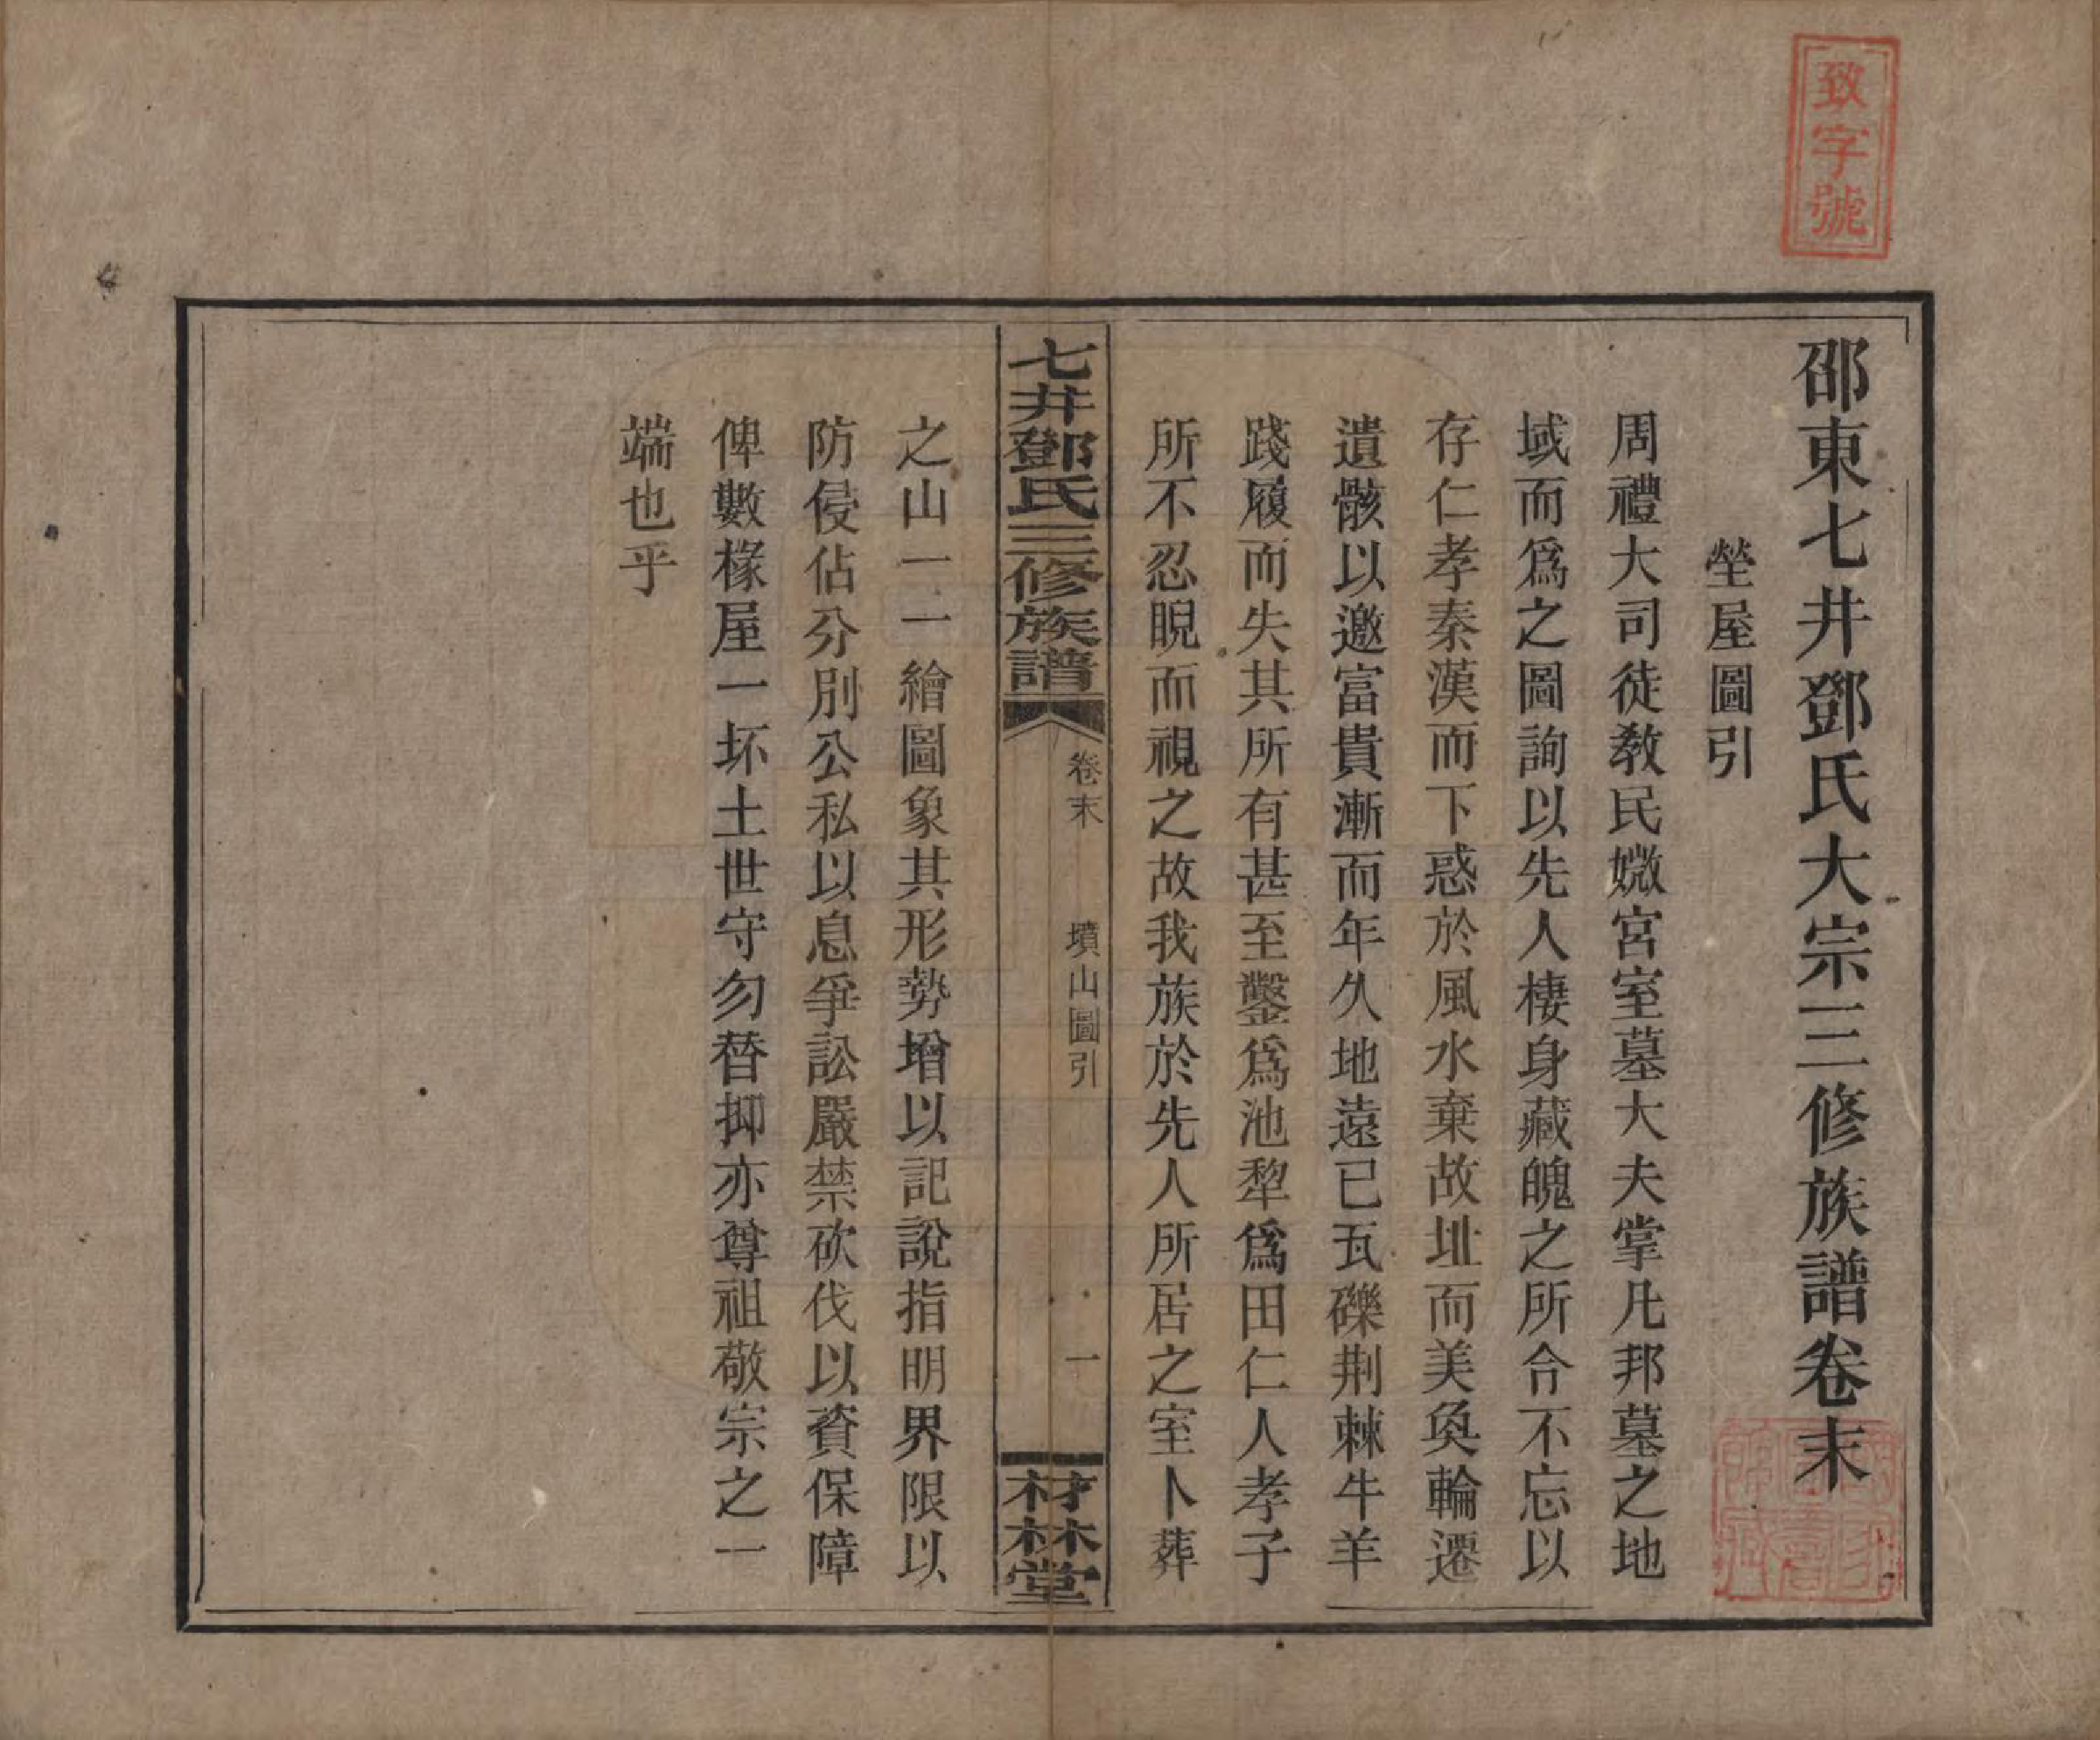 致字號
邵東七井鄧氏大宗三修族譜卷末
塋屋圖引
周禮大司徒教民媺宮室墓大夫掌凡邦墓之地
域而爲之圖詢以先人棲身藏魄之所合不忘以
存仁孝秦漢而下惑於風水棄故址而美奐輪遷
遺骸以邀富貴漸而年久地遠已瓦礫荆棘牛羊
踐履而失其所有甚至鑿爲池犂爲田仁人孝子
所不忍睨而視之故我族於先人所居之室卜葬
七井鄧氏三修族譜
卷末
墳山圖引
一
材林堂
之山一一繪圖象其形勢增以記說指明界限以
防侵佔分別公私以息爭訟嚴禁砍伐以資保障
俾數椽屋一坏土世守勿替抑亦尊祖敬宗之一
端也乎